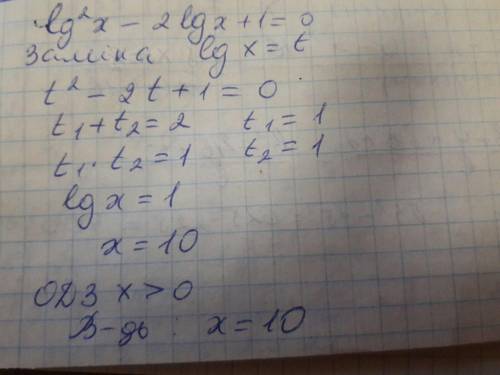 lg²x − 2lgx + 1 = 0
Заміна lg x = t
t² − 2t + 1 = 0
t₁ + t₂ = 2 t₁ = 1
t₁ · t₂ = 1 t₂ = 1
lg x = 1
x = 10
ОДЗ x > 0
В-дь : x = 10